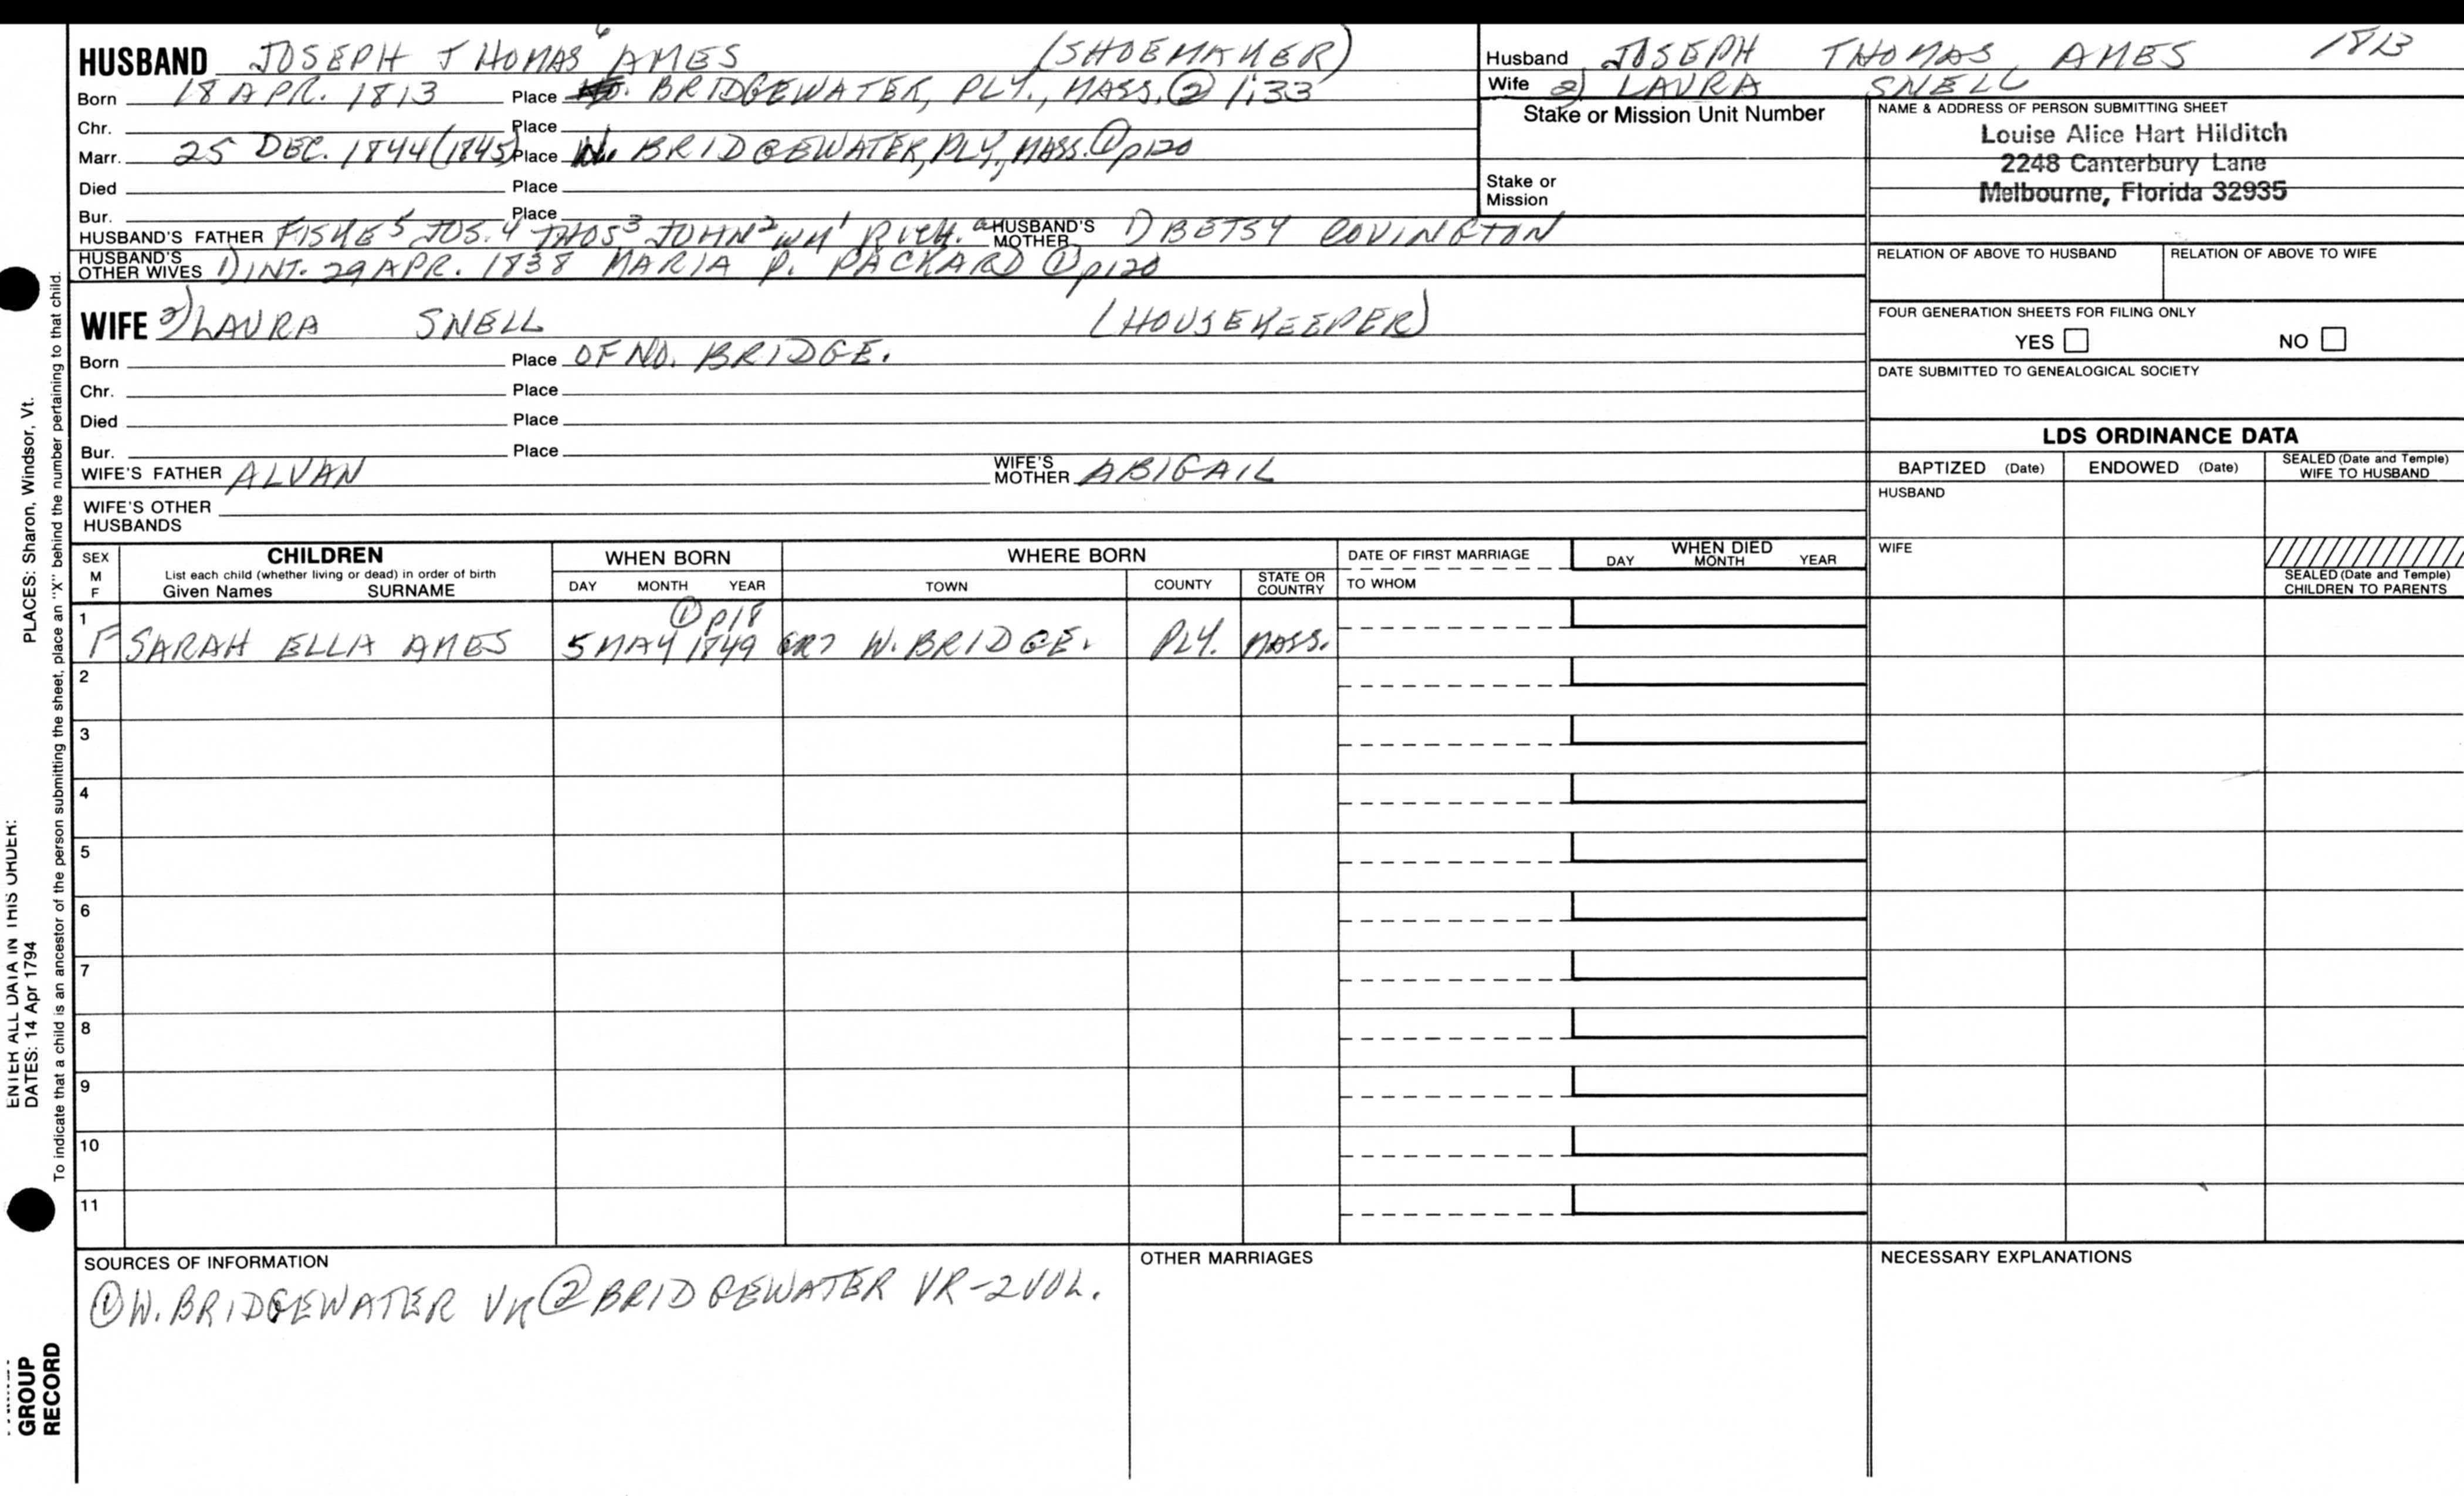 HUSBAND JOSEPH THOMAS 6 AMES (SHOEMAKER)
Born 18 APR. 1813 Place BRIDGEWATER, PLY., MASS. ② 1:33
Chr. Place
Marr. 25 DEC. 1844 (1845) Place W. BRIDGEWATER, PLY., MASS. ① p120
Died Place
Bur. Place
HUSBAND'S FATHER FISKE 5 JOS. 4 THOS 3 JOHN 2 WM 1 RICH. a HUSBAND'S MOTHER 1) BETSY COVINGTON
HUSBAND'S OTHER WIVES 1) INT. 29 APR. 1838 MARIA P. PACKARD ① p120
WIFE 2) LAURA SNELL (HOUSEKEEPER)
Born Place OF NO. BRIDGE.
Chr. Place
Died Place
Bur. Place
WIFE'S FATHER ALVAN WIFE'S MOTHER ABIGAIL
WIFE'S OTHER HUSBANDS
Husband JOSEPH THOMAS AMES 1813
Wife 2) LAURA SNELL
Stake or Mission Unit Number
Stake or
Mission
NAME & ADDRESS OF PERSON SUBMITTING SHEET
Louise Alice Hart Hilditch
2248 Canterbury Lane
Melbourne, Florida 32935
RELATION OF ABOVE TO HUSBAND RELATION OF ABOVE TO WIFE
FOUR GENERATION SHEETS FOR FILING ONLY
YES NO
DATE SUBMITTED TO GENEALOGICAL SOCIETY
LDS ORDINANCE DATA
BAPTIZED (Date) ENDOWED (Date) SEALED (Date and Temple) WIFE TO HUSBAND
HUSBAND
WIFE
SEALED (Date and Temple)
CHILDREN TO PARENTS
SEX M F
CHILDREN
List each child (whether living or dead) in order of birth
Given Names SURNAME
WHEN BORN
DAY MONTH YEAR
WHERE BORN
TOWN COUNTY STATE OR COUNTRY
DATE OF FIRST MARRIAGE
TO WHOM
WHEN DIED
DAY MONTH YEAR
① p18
1 F SARAH ELLA AMES 5 MAY 1849 W. BRIDGE. PLY. MASS.
2
3
4
5
6
7
8
9
10
11
SOURCES OF INFORMATION
① W. BRIDGEWATER VR ② BRIDGEWATER VR-2 VOL.
OTHER MARRIAGES
NECESSARY EXPLANATIONS
PLACES: Sharon, Windsor, Vt.
ENTER ALL DATA IN THIS ORDER:
DATES: 14 Apr 1794
To indicate that a child is an ancestor of the person submitting the sheet, place an "X" behind the number pertaining to that child.
GROUP
RECORD